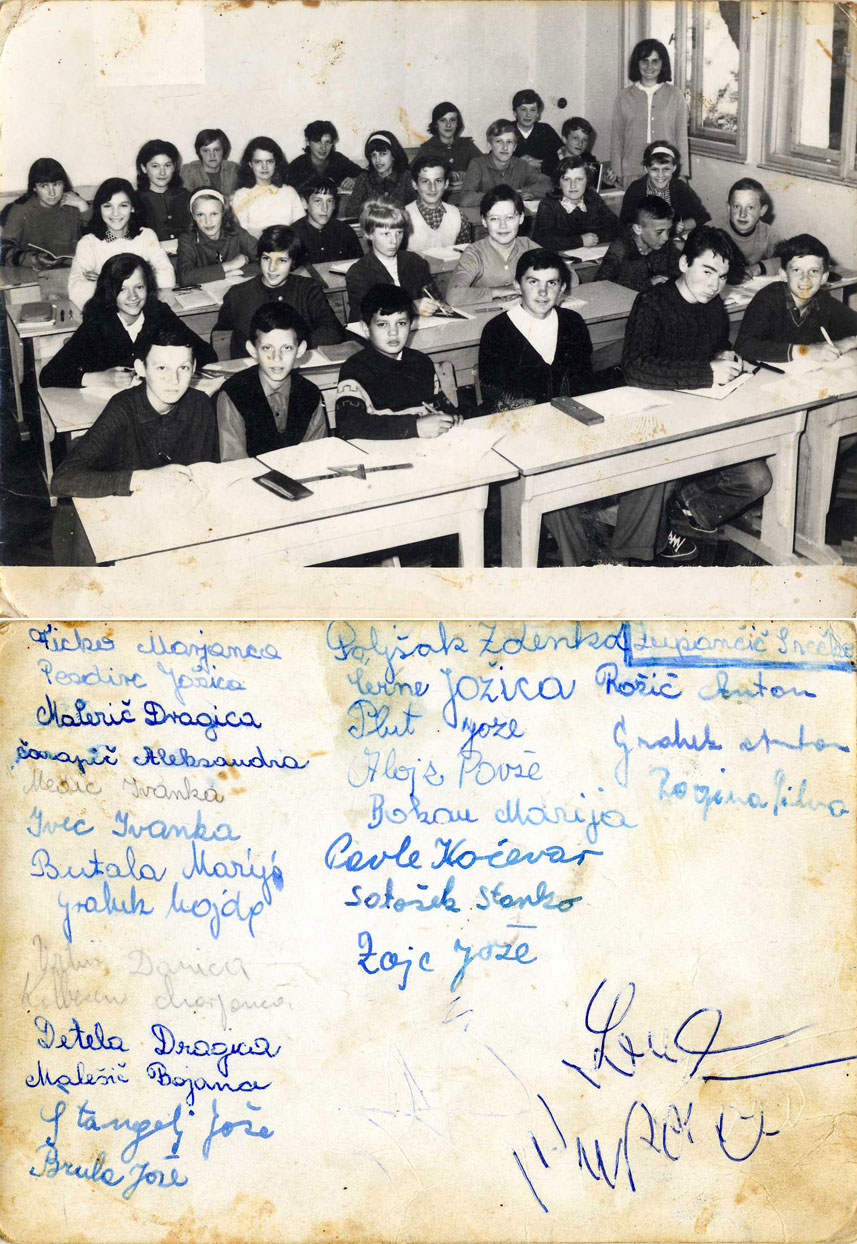 Marjanca
Jožica
Malerič Dragica
Aleksandra
Ivanka
Ivec Ivanka
Butala Marija
Grahek
Danica
Marjanca
Detela Dragica
Malešič Bojana
Štangelj Jože
Brula Jože
Poljšak Zdenka
Černe Jožica
Plut Jože
Alojz Povše
Bokan Marija
Pavle Kočevar
Satošek Stanko
Zajc Jože
Zupančič Srečko
Rožič Anton
Grahek Anton
Rogina Silva